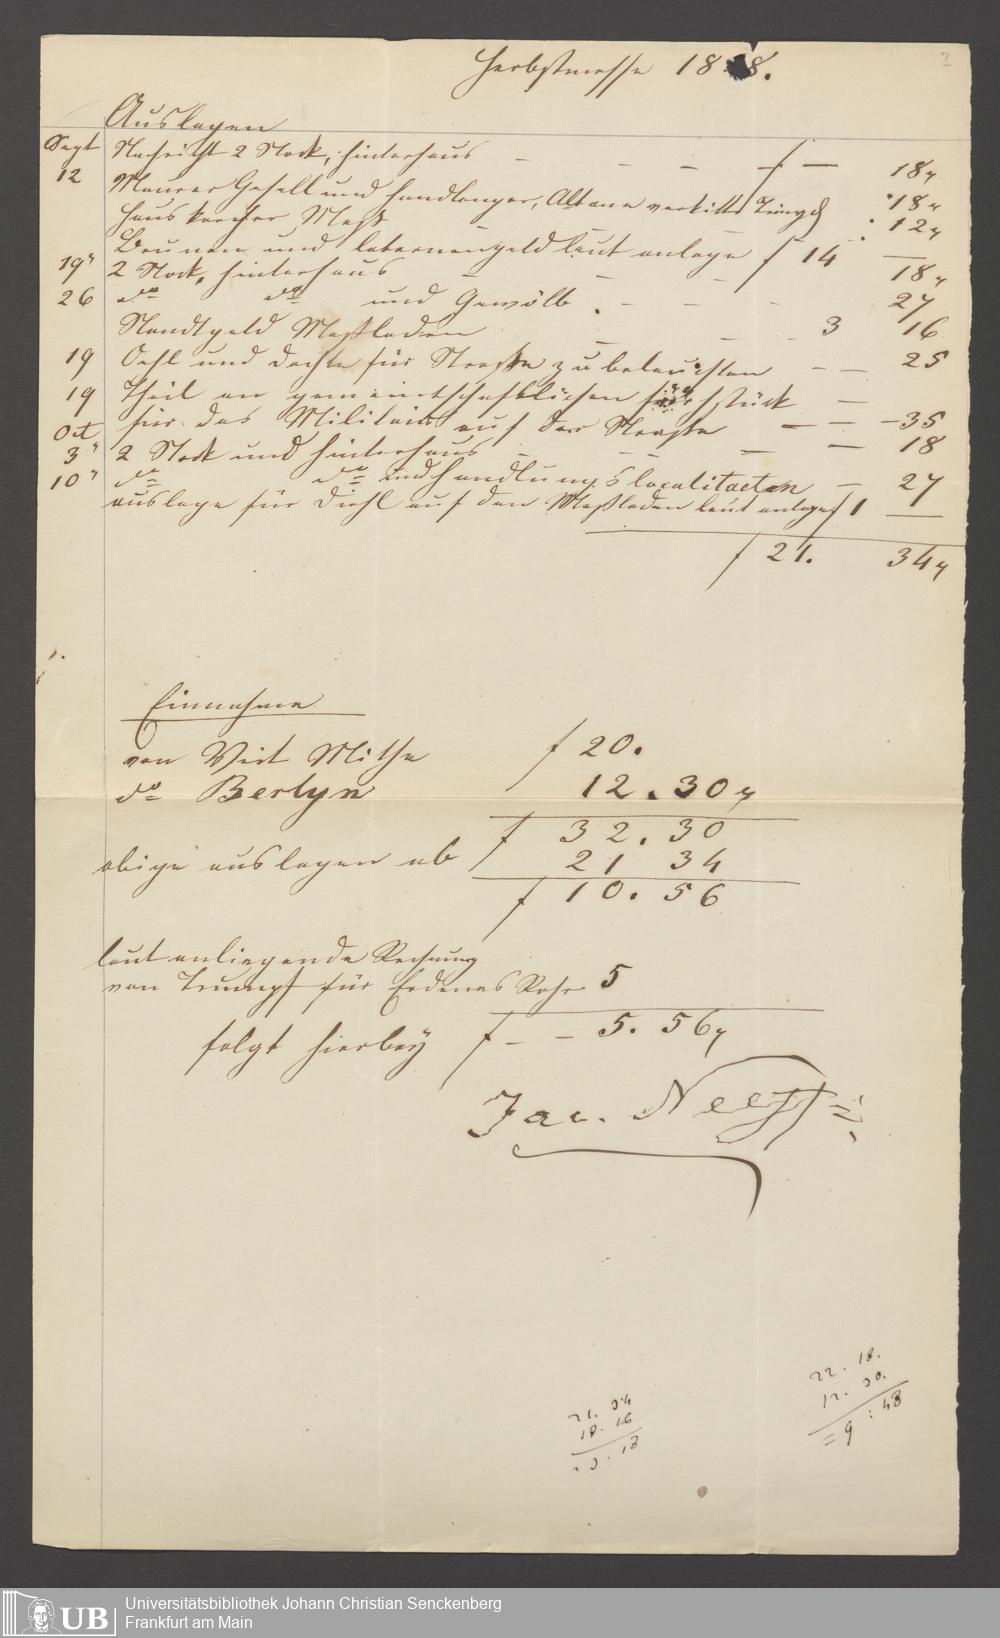 Herbstmesse 18 8.
3
Auslagen
Sept Nachricht 2 Stock, hinterhaus — — — f — 18
12 Maurer Gesell und handlanger, Altane verkittet 18
hauskercher Meß — 12
Brunnen und laternengeld laut anlage f 14 —
19 2 Stock, hinterhaus — — — 18
26 do do und Gewölb — — — 27
Standtgeld Meßladen — — 3 16
19 Oehl und dochte für Strasse zu beleuchten — — 25
19 Theil an gemeinschaftlichen frühstück —
für das Militair auf der Strasse — — — 35
Oct
3 2 Stock und hinterhaus — — — 18
10 do do und handlungslocalitaeten — 27
auslage für Diehl auf den Meßladen laut anlage f 1 —
f 21. 34
Einnahme
von Veit Miethe f 20.
do Berlyn 12. 30
f 32. 30
obige auslagen ab 21 34
f 10. 56
laut anliegende Rechnung
von Trumpf für Erdenes Rohr 5
folgt hierbey f — — 5. 56
Jac. Neeff
22. 18.
12. 30.
= 9 : 48
21. 34
18. 16
3. 18
UB Universitätsbibliothek Johann Christian Senckenberg
Frankfurt am Main